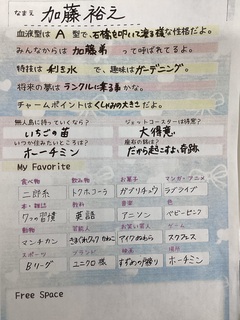 なまえ 加藤裕え
血液型は A 型で、石橋を叩いて渡る様な性格だよ。
みんなからは 加藤弟 って呼ばれてるよ。
特技は 利き水 で、趣味は ガーデニング。
将来の夢は ランクルに乗る事 かな。
チャームポイントは くしゃみの大きさ だよ。
無人島に持っていくなら? ジェットコースターは得意?
いちごの苗 大得意
いつか住みたいところは? 座右の銘は?
ホーチミン だから起こすよ、奇跡
My Favorite
食べ物 飲み物 お菓子 マンガ・アニメ
二郎系 トクホコーラ カプリチョウ ラブライブ
本・雑誌 教科 音楽 色
7つの習慣 英語 アニソン ベビーピンク
動物 芸能人 お笑い芸人 ゲーム
マンチカン アイクぬわら スクフェス
スポーツ ブランド 映画 場所
Bリーグ ユニクロ様 すずめの戸締り ホーチミン
Free Space